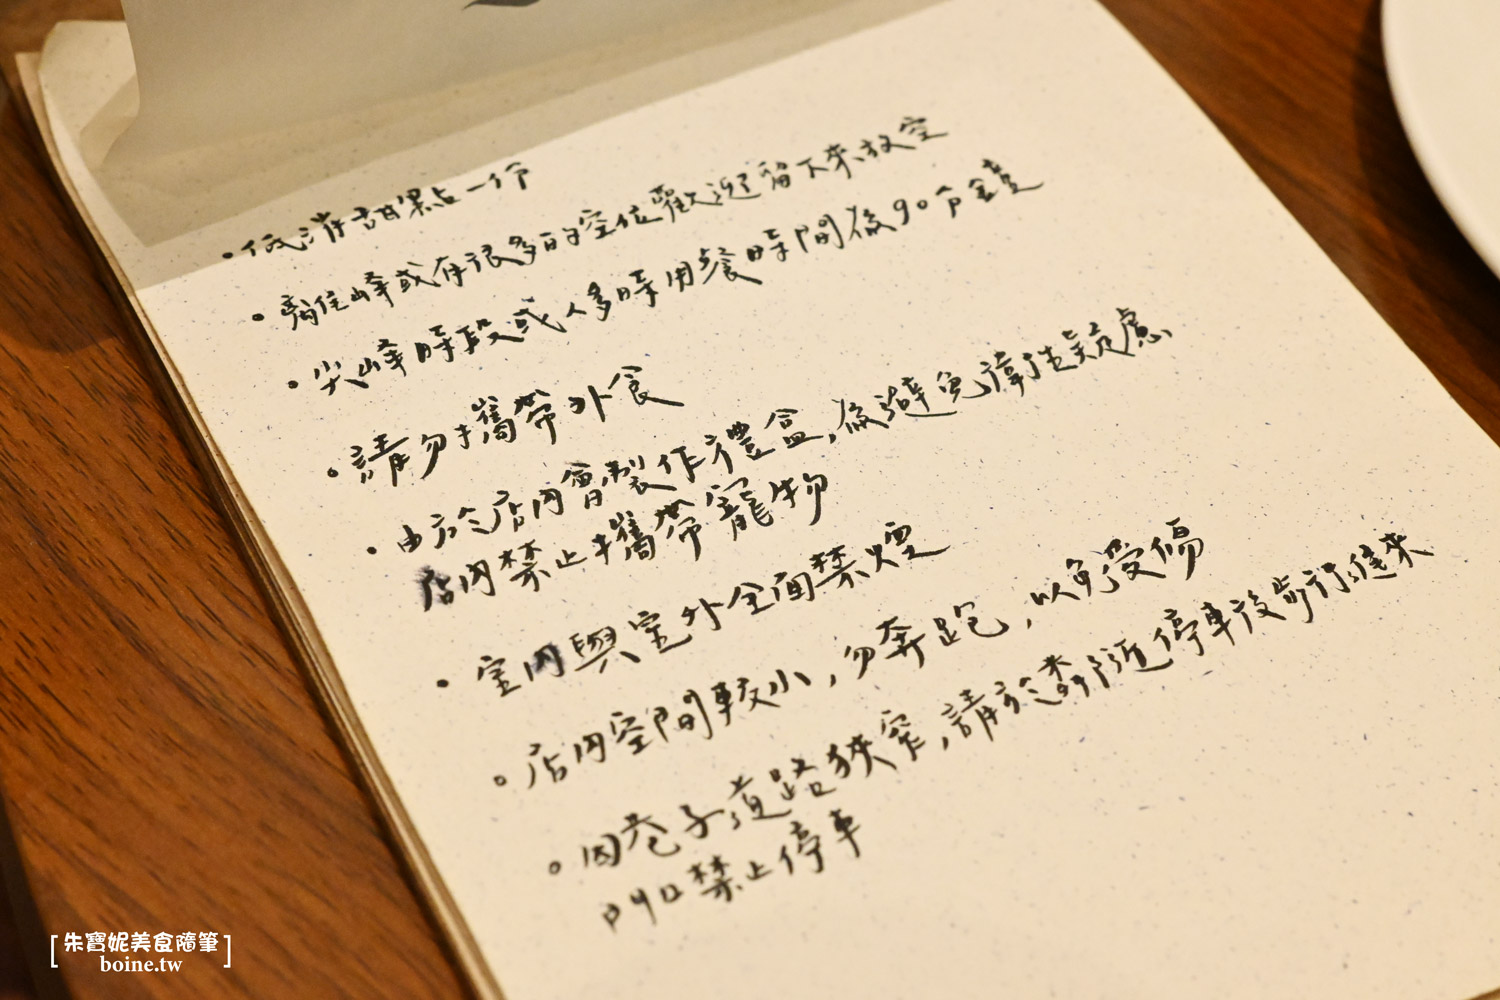 • 低消甜點一份
• 離峰或有很多的空位歡迎留下來放空
• 尖峰時段或人多時用餐時間為90分鐘
• 請勿攜帶外食
• 由於店內會製作禮盒,為避免衛生疑慮
店內禁止攜帶寵物
• 室內與室外全面禁煙
• 店內空間較小,勿奔跑,以免受傷
• 因巷子道路狹窄,請於鄰近停車後步行進來
門口禁止停車
[朱寶妮美食隨筆]
boine.tw